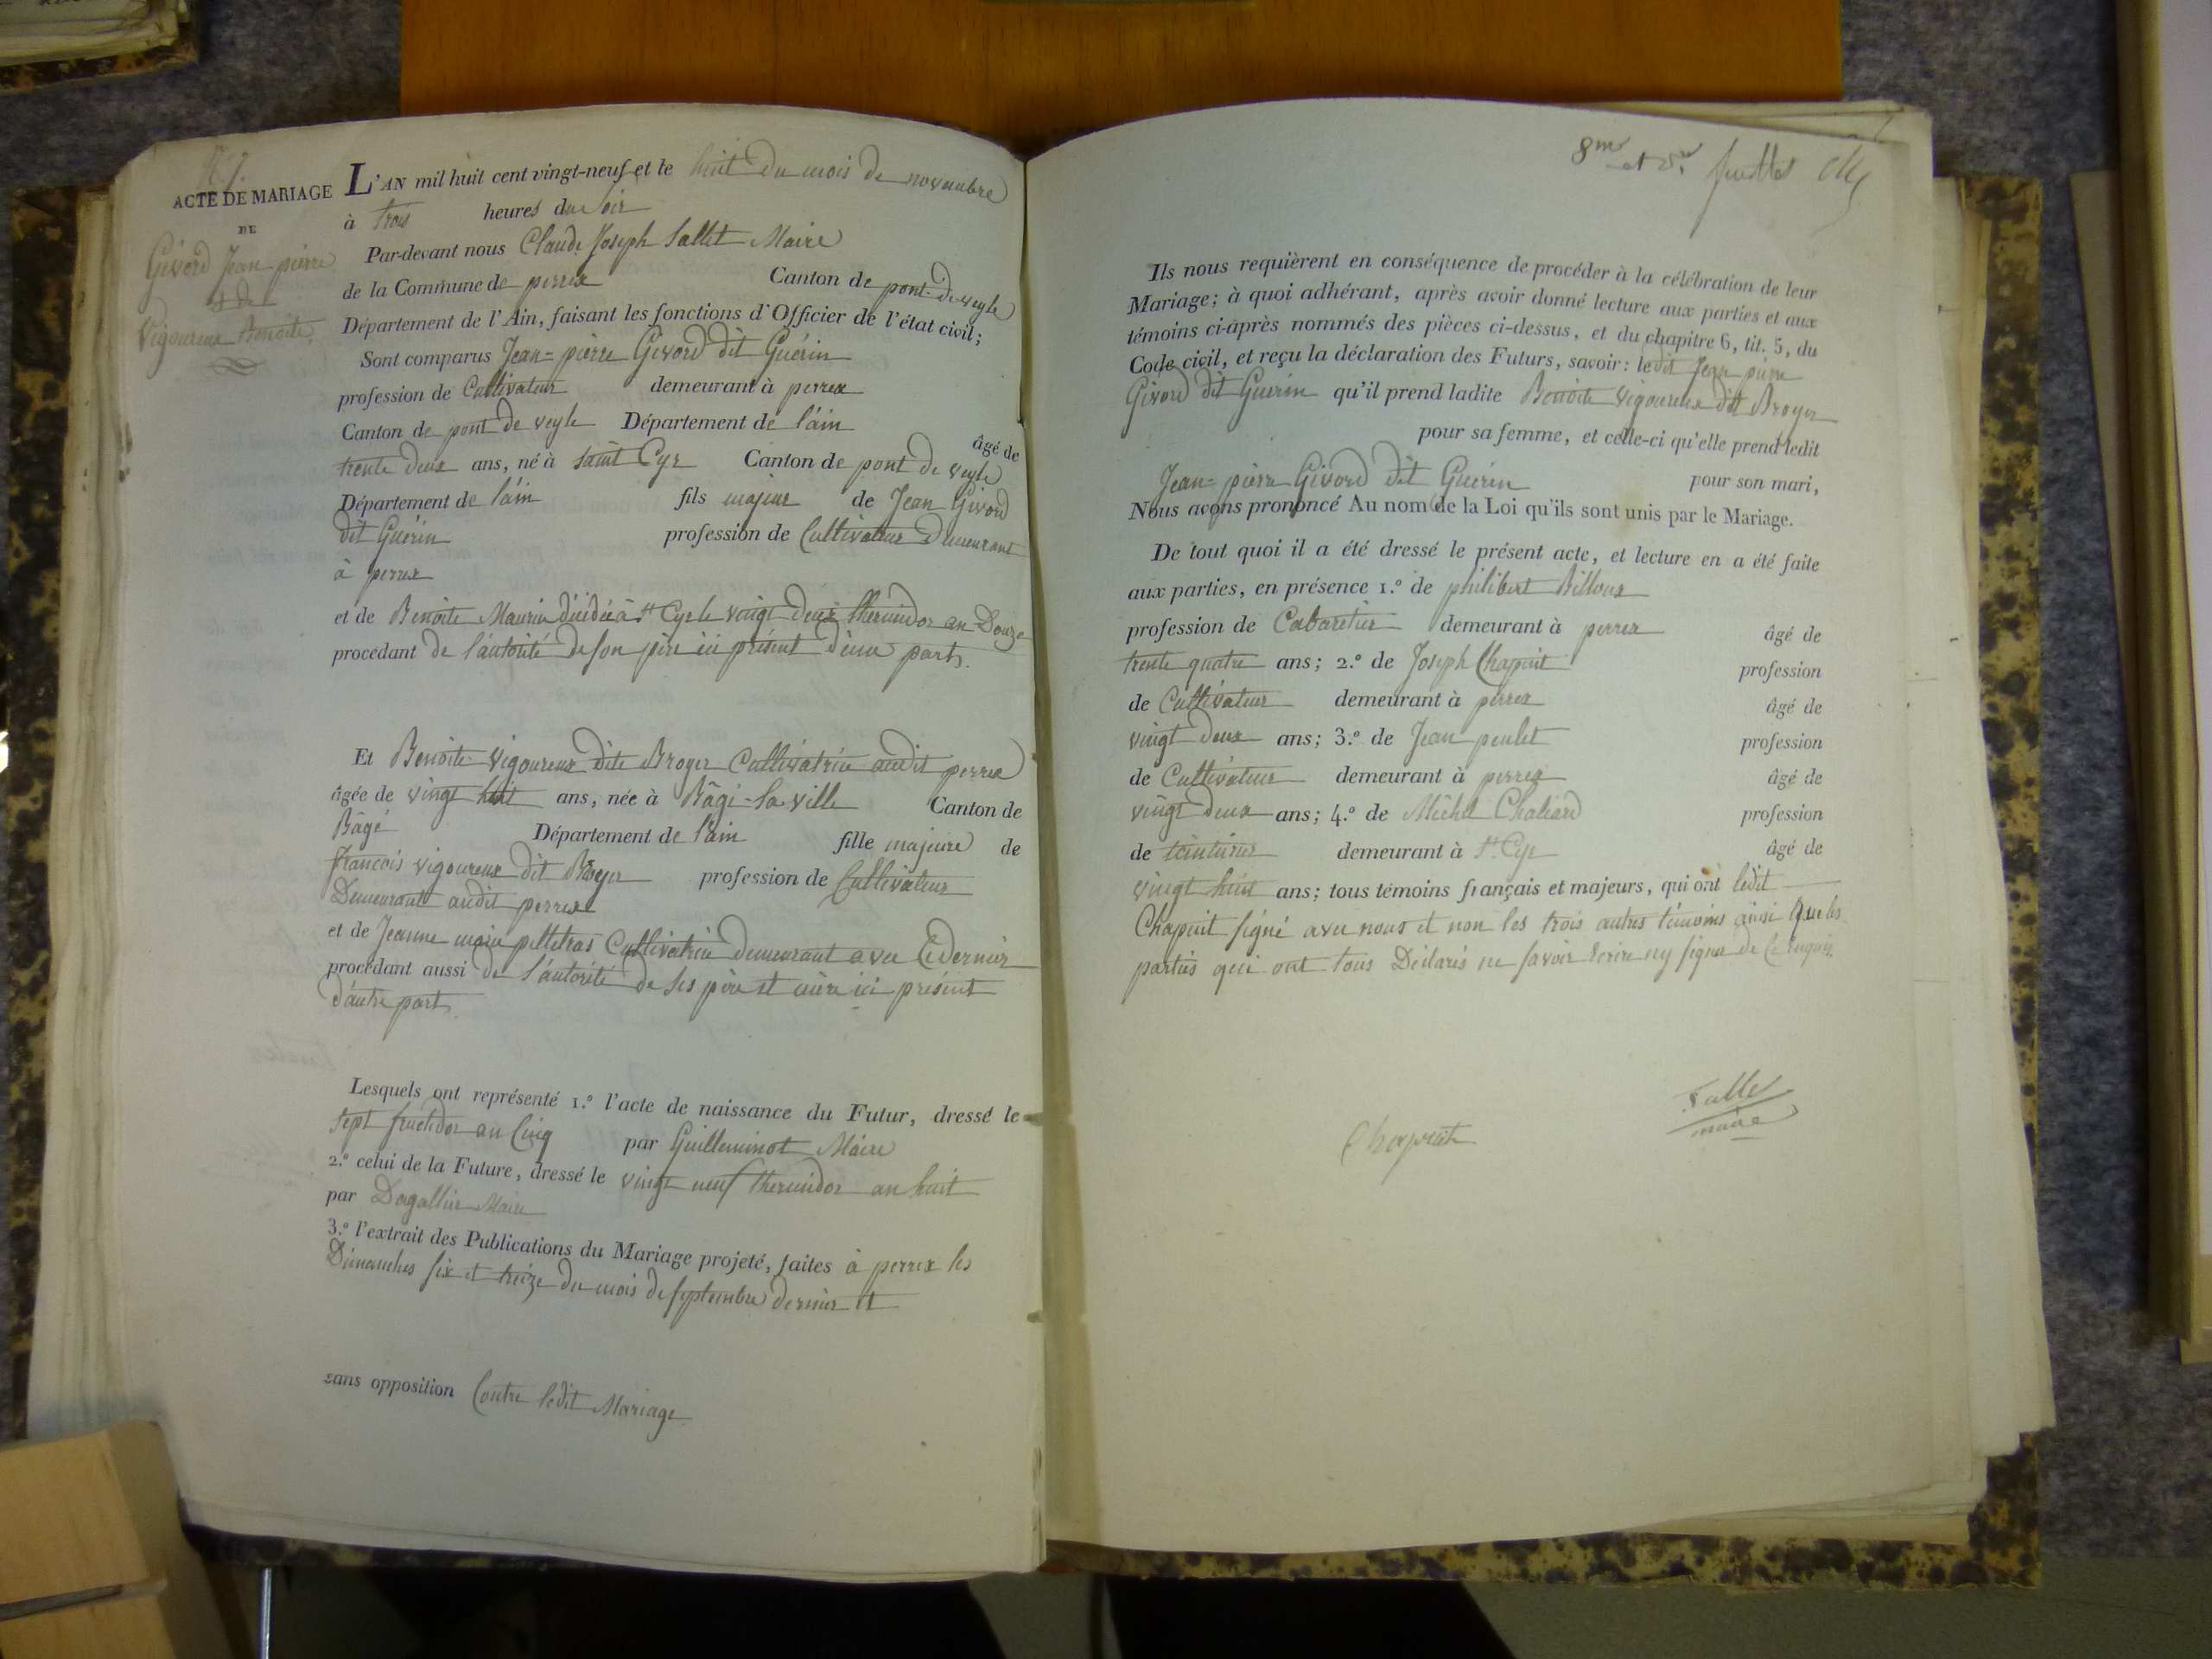 N.° 7.
ACTE DE MARIAGE
DE
Givord Jean pierre
& de
Vigoureux Benoite
L'AN mil huit cent vingt-neuf et le huit du mois de novembre
à trois heures du soir
Par-devant nous Claude Joseph Sallet Maire
de la Commune de perrex Canton de pont-de-veyle
Département de l'Ain, faisant les fonctions d'Officier de l'état civil;
Sont comparus Jean=pierre Givord dit Guérin
profession de Cultivateur demeurant à perrex
Canton de pont de veyle Département de l'ain âgé de
trente deux ans, né à saint Cyr Canton de pont de veyle
Département de l'ain fils majeur de Jean Givord
dit Guérin profession de Cultivateur demeurant
à perrex
et de Benoite Maurin décédée à st Cyr le vingt deux thermidor an Douze
procédant de l'autorité de son père ici présent d'une part.
Et Benoite Vigoureux dite Broyer Cultivatrice audit perrex
âgée de vingt huit ans, née à Bâgé-la-ville Canton de
Bâgé Département de l'ain fille majeure de
francois vigoureux dit Broyer profession de Cultivateur
Demeurant audit perrex
et de Jeanne marie pelletras Cultivatrice demeurant avec Ce dernier
procédant aussi de l'autorité de ses père et mère ici présent
d'autre part.
Lesquels ont représenté 1.° l'acte de naissance du Futur, dressé le
sept fructidor an Cinq par Guilleminot Maire
2.° celui de la Future, dressé le vingt neuf thermidor an huit
par Dagallier Maire
3.° l'extrait des Publications du Mariage projeté, faites à perrex les
Dimanches six et treize du mois de septembre dernier et
sans opposition Contre ledit Mariage
8me et dr. feuillet
Ils nous requièrent en conséquence de procéder à la célébration de leur
Mariage; à quoi adhérant, après avoir donné lecture aux parties et aux
témoins ci-après nommés des pièces ci-dessus, et du chapitre 6, tit. 5, du
Code civil, et reçu la déclaration des Futurs, savoir: ledit Jean pierre
Givord dit Guérin qu'il prend ladite Benoite vigoureux dit Broyer
pour sa femme, et celle-ci qu'elle prend ledit
Jean=pierre Givord dit Guérin pour son mari,
Nous avons prononcé Au nom de la Loi qu'ils sont unis par le Mariage.
De tout quoi il a été dressé le présent acte, et lecture en a été faite
aux parties, en présence 1.° de philibert Billoux
profession de Cabaretier demeurant à perrex âgé de
trente quatre ans; 2.° de Joseph Chapuit profession
de Cultivateur demeurant à perrex âgé de
vingt deux ans; 3.° de Jean poulet profession
de Cultivateur demeurant à perrex âgé de
vingt deux ans; 4.° de Michel Chaliard profession
de teinturier demeurant à St. Cyr âgé de
vingt huit ans; tous témoins français et majeurs, qui ont ledit
Chapuit signé avec nous et non les trois autres témoins ainsi que les
parties qui ont tous Déclarés ne savoir Ecrire ny signer de Ce requis.
Chapuit
Sallet
maire